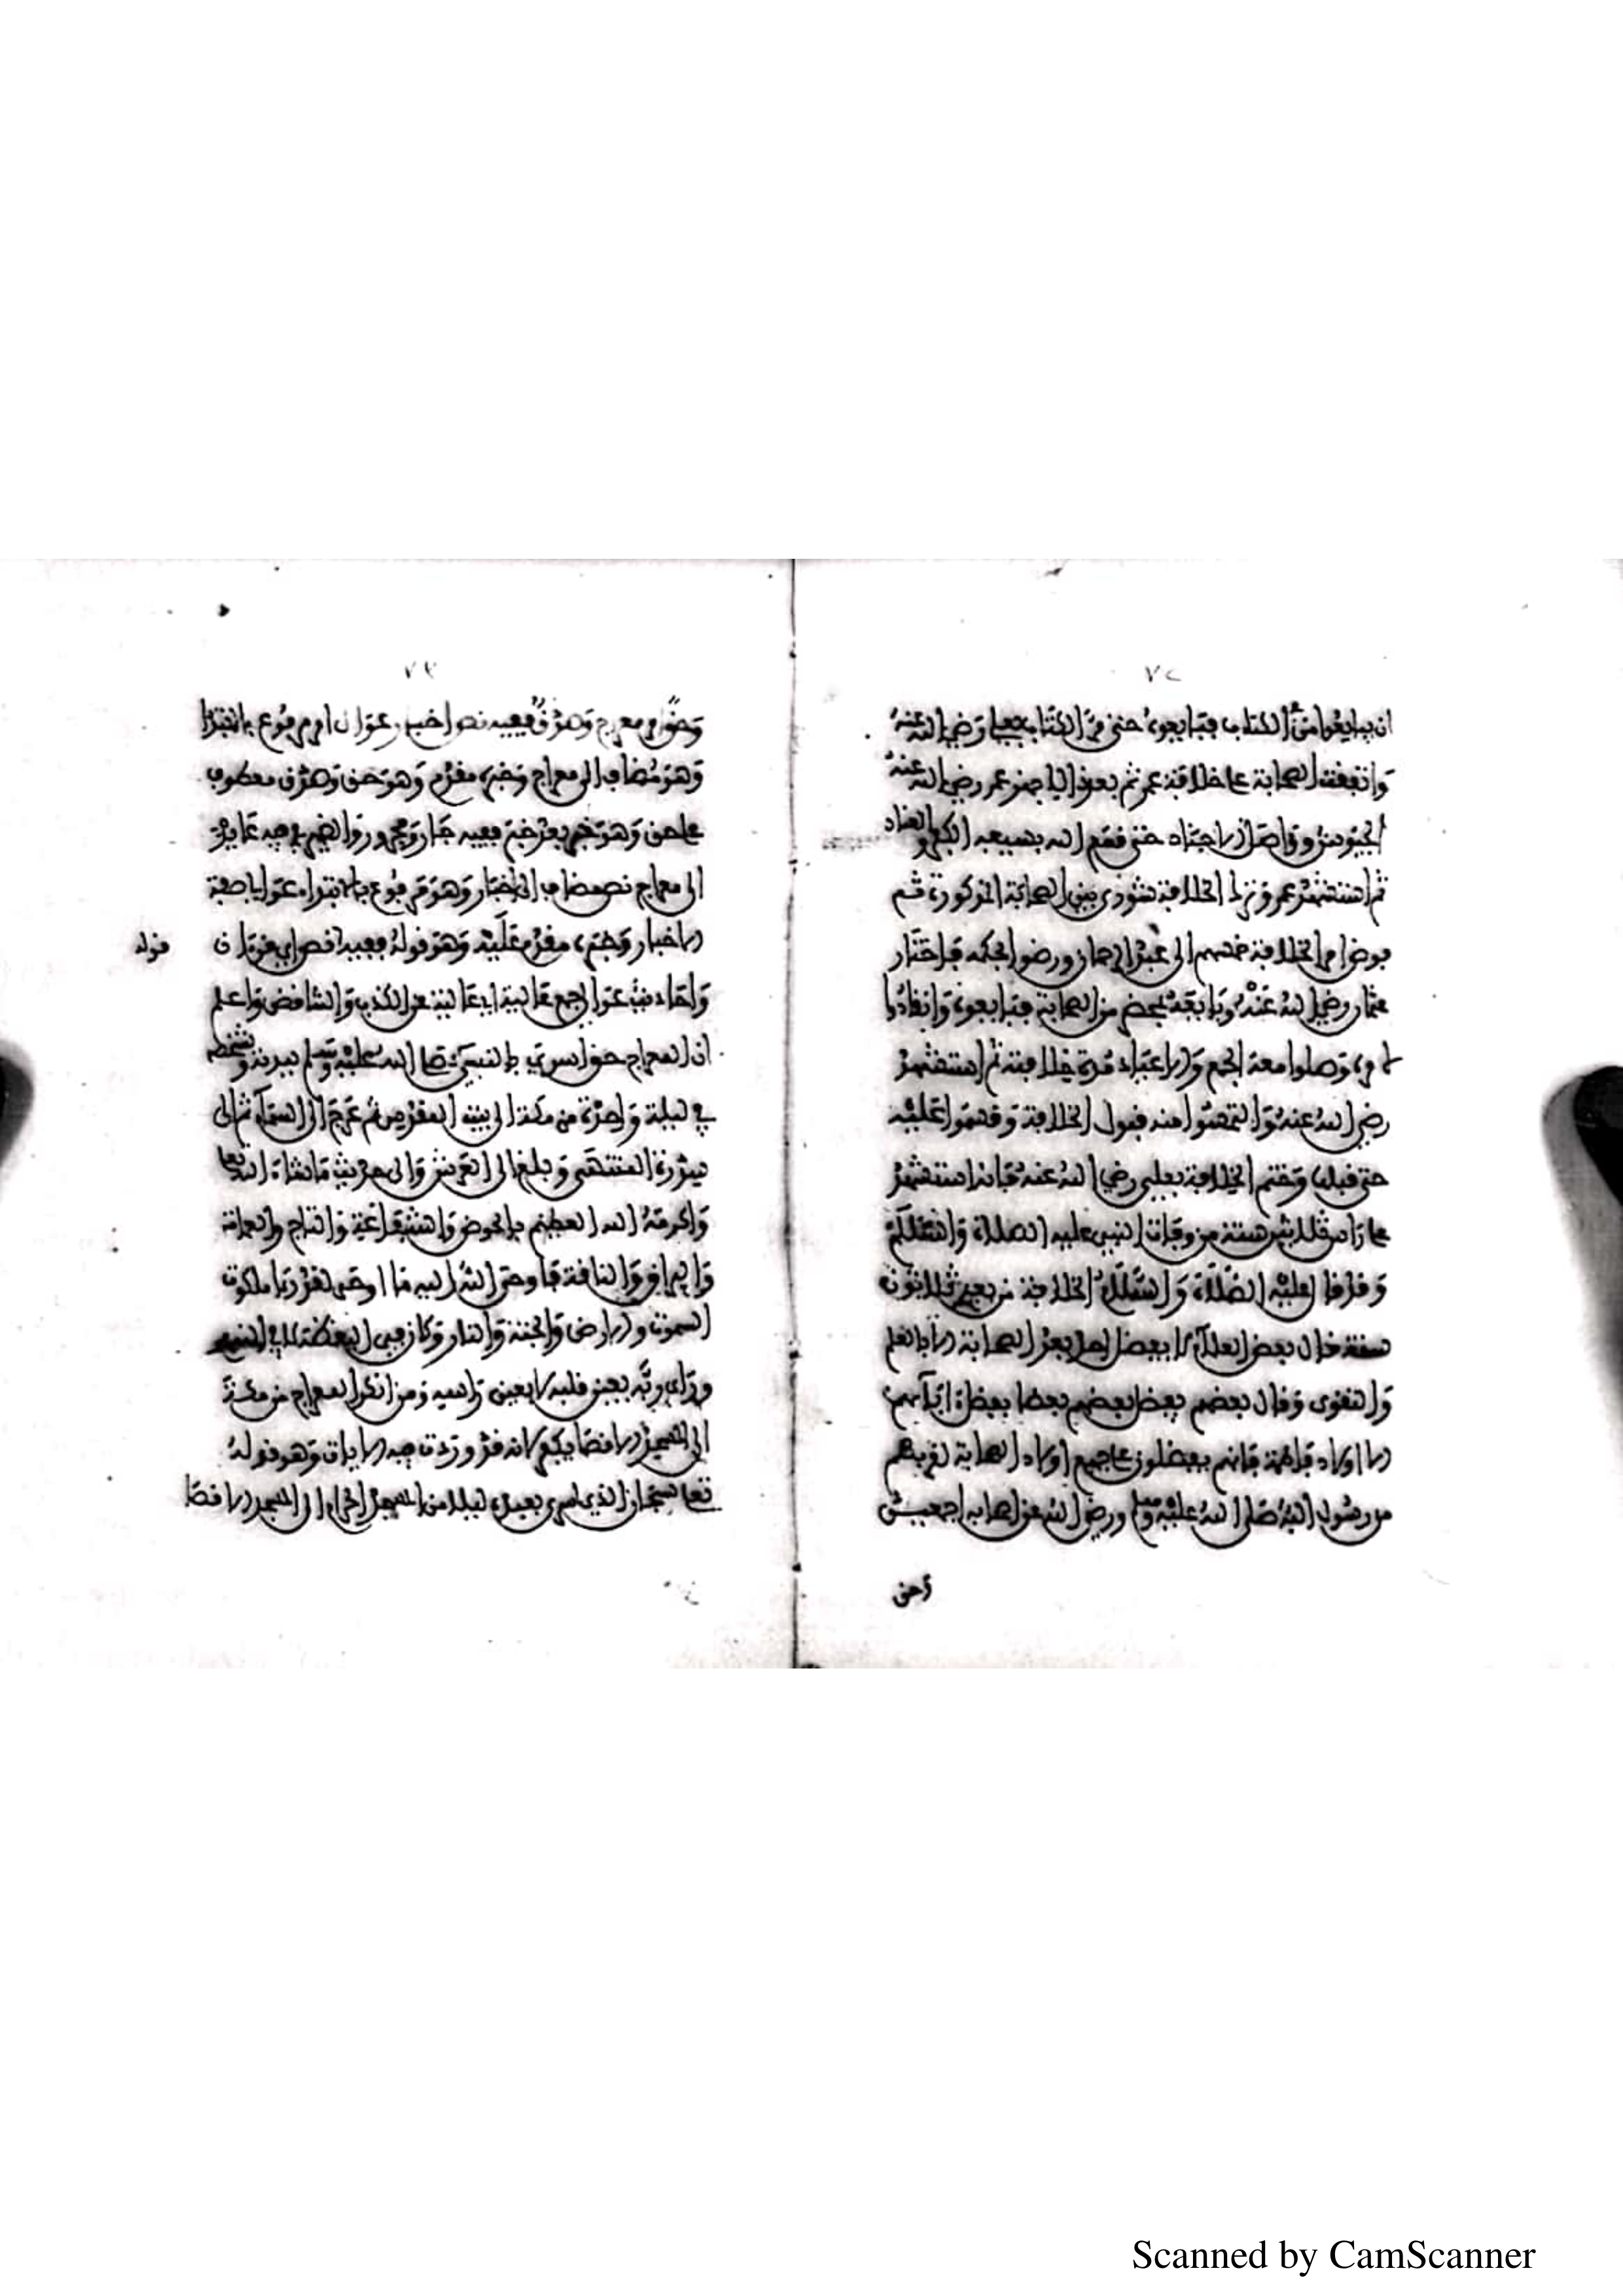 ٧٢
ان يبايعوا من في الكتاب فبايعوه حتى مر الكتاب بعلي رضي الله عنه
واتفقت الصحابة على خلافة عمر ثم بعون الله عمر رضي الله عنه
حتى قمع الله بسيفه الكفر والعناد
ثم استشهد عمر وترك الخلافة شورى بين الصحابة المذكورة ثم
فوض امر الخلافة خمستهم الى عبد الرحمان ورضوا بحكمه فاختار
عثمان رضي الله عنه وبايعه بمحضر من الصحابة فبايعوه وانقادوا
وصلوا معه الجمع والاعياد مدة خلافته ثم استشهد
رضي الله عنه والتمسوا منه قبول الخلافة واقسموا عليه
حتى قبلها وختم الخلافة بعلي رضي الله عنه فانه استشهد
على راس ثلاثين سنة من وفات النبي عليه الصلاة والسلام
وقد قال عليه الصلاة والسلام الخلافة من بعدي ثلاثون
سنة قال بعض العلماء لا يفضل احد بعد الصحابة الا بالعلم
والتقوى وقال بعضهم يفضل بعضهم بعضا بفضل ابائهم
الا اولاد فاطمة فانهم يفضلون على جميع اولاد الصحابة لقربهم
من رسول الله صلى الله عليه وسلم ورضي الله عن اصحابه اجمعين
وحق
٧٣
وحق امر معراج وصدق ففيه نص اخبار عوال امر مرفوع بالابتدا
وهو مضاف الى معراج وخبره مقدم وهو حق وصدق معطوف
على حق وهو خبر بعد خبر ففيه جار ومجرور والضمير في فيه عائد
الى معراج نص مضاف الى اخبار وهو مرفوع بالابتداء عوال صفة
الاخبار وخبره مقدم عليه وهو قوله ففيه نص اي قرءان
قوله
واحاديث عوال جمع عالية اي عالية عن الكذب والتناقض واعلم
ان المعراج حق اسري بالنبي صلى الله عليه وسلم ببدنه وشخصه
في ليلة واحدة من مكة الى بيت المقدس ثم عرج الى السماء ثم الى
سدرة المنتهى وبلغ الى العرش والى حيث ما شاء الله تعا
واكرمه الله العظيم بالحوض والشفاعة والتاج والعمامة
والبراق والناقة فاوحى الله اليه ما اوحى لقد راى ملكوت
السموت والارض والجنة والنار وكان في اليقظة لا في النوم
وراى ربه بعين قلبه لا بعين راسه ومن انكر المعراج من مكة
الى المسجد الاقصا يكفر لانه قد وردت فيه الايات وهو قوله
تعا سبحان الذي اسرى بعبده ليلا من المسجد الحرام الى المسجد الاقصا
Scanned by CamScanner